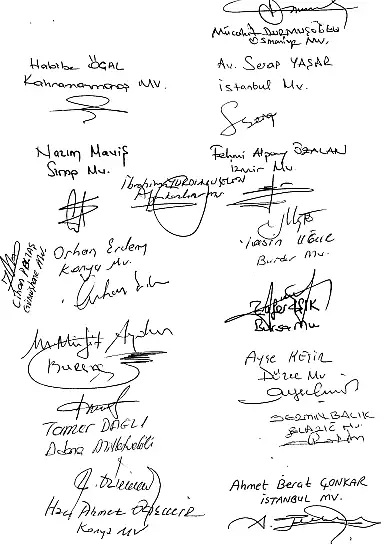 Mücahit DURMUŞOĞLU
Osmaniye Mv.
Habibe ÖÇAL
Kahramanmaraş Mv.
Av. Serap YAŞAR
İstanbul Mv.
Nazım Maviş
Sinop Mv.
Fehmi Alpay ÖZALAN
İzmir Mv.
İbrahim YURDUNUSEVEN
Afyonkarahisar mv
Cihan PEKTAŞ
Gümüşhane Mv.
Orhan Erdem
Konya Mv.
Yasin UĞUR
Burdur Mv.
Zafer IŞIK
Bursa Mv
Müfit Aydın
Bursa
Ayşe KEŞİR
Düzce Mv
Tamer DAĞLI
Adana Milletvekili
SERMİN BALIK
ELAZIĞ Mv.
Hacı Ahmet ÖZDEMİR
Konya Mv
Ahmet Berat ÇONKAR
İSTANBUL MV.